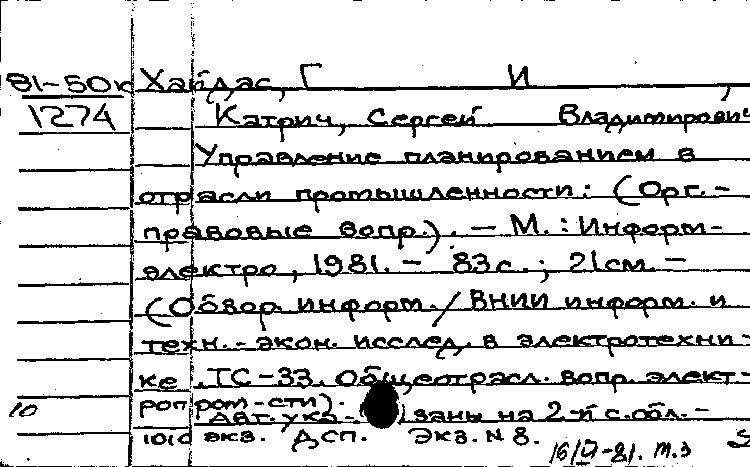 81-50к Хайдас, Г И ,
1274 Катрич, Сергей Владимирович
Управление планированием в
отрасли промышленности: (Орг.-
правовые вопр.). — М.: Информ-
электро, 1981. — 83с.; 21см. —
(Обзор. информ./ ВНИИ информ. и
техн.-экон. исслед. в электротехни-
ке .ТС-33. Общеотрасл. вопр. элект-
ропром-сти).
10 Авт. указаны на 2-й с. обл. —
1010 экз. Дсп. Экз. N 8.
16/ -81. т.з